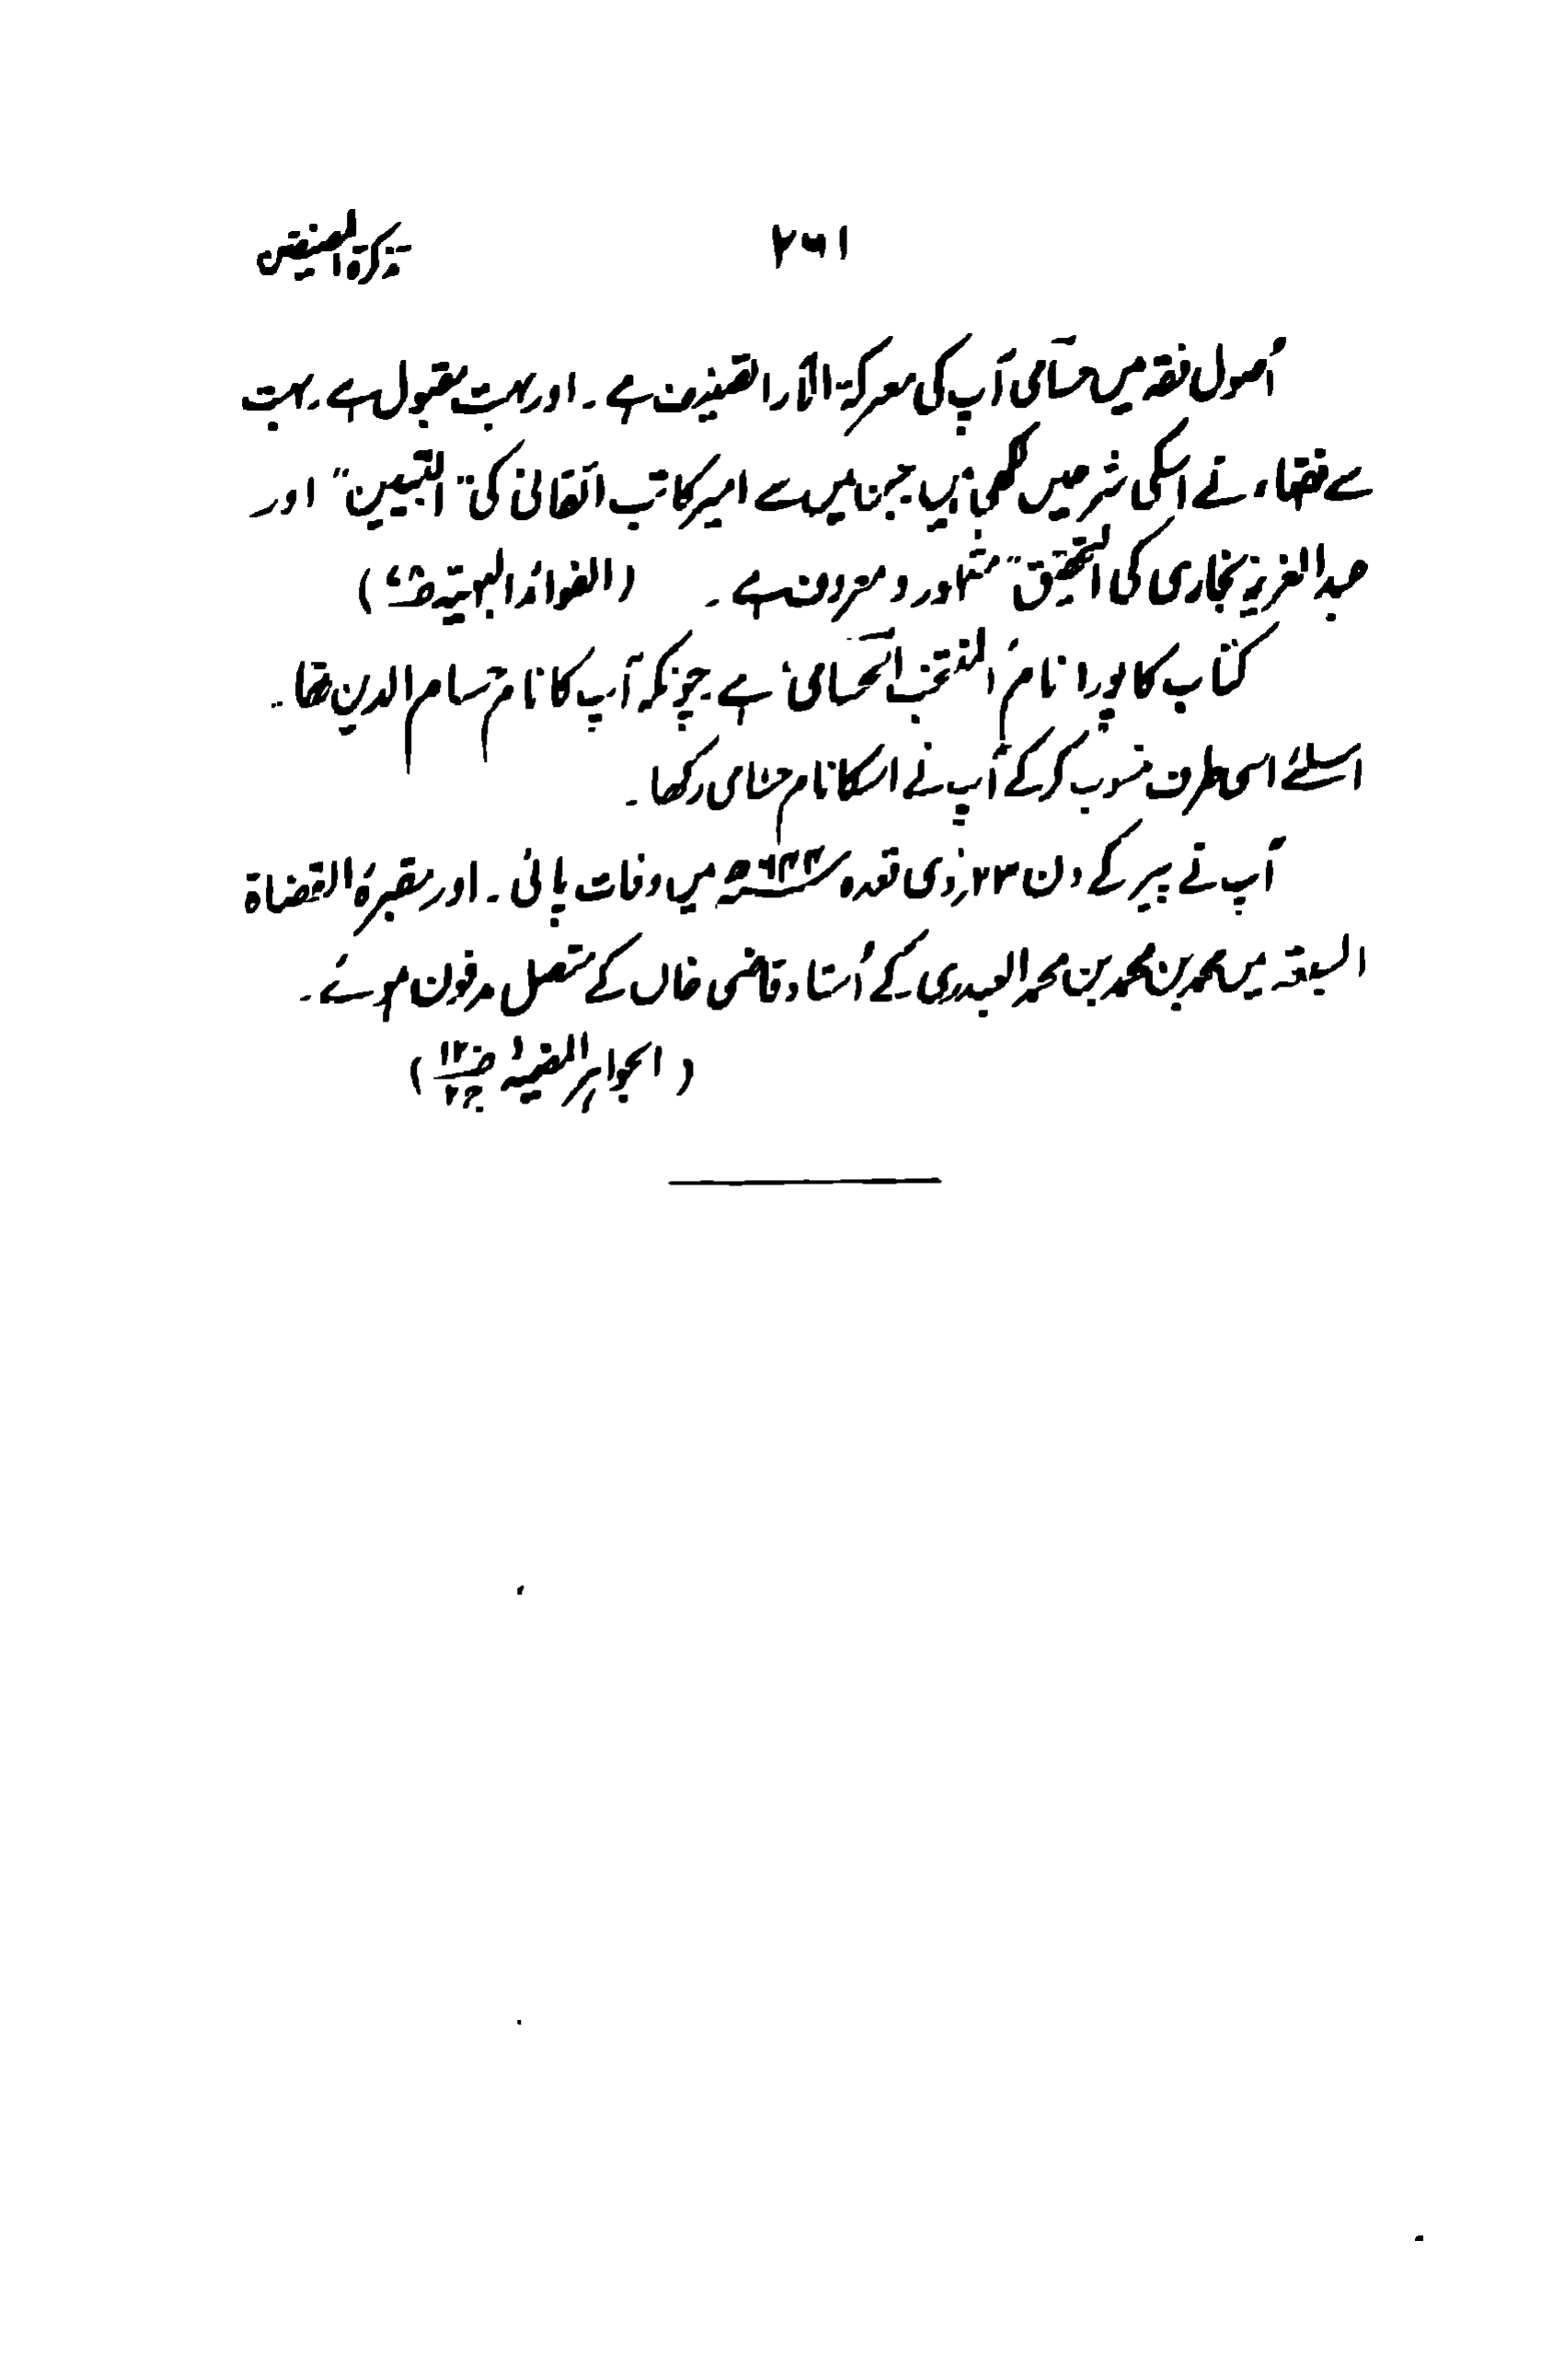 تذکرۃ المصنفین ۲۶۱
اُصول فقہ میں حسامی آپ کی معرکۃ الآراء تصنیف ہے ۔ اور بہت مقبول ہے ۔ بہت
سے فقہاء نے اسکی شرحیں لکھی ہیں جن میں سے امیر کاتب اتقانی کی "التبیین" اور
عبدالعزیز بخاری کی "التحقیق" مشہور و معروف ہے ۔ (الفوائد البہیّہ)
کتاب کا پورا نام المنتخب الحسامی ہے ۔ چونکہ آپ کا نام حسام الدین تھا ۔
اسلئے اسی طرف منسوب کرکے آپ نے اسکا نام حسامی رکھا ۔
آپ نے پیر کے دن ۲۳؍ ذی قعدہ ۶۴۴ھ میں وفات پائی ۔ اور مقبرۃ القضاۃ
السبعۃ میں محمد بن محمد بن محمد العبدری کے اُستاد قاضی خاں کے متصل مدفون ہوئے ۔
(الجواہر المضیئہ ص۱۲۰ ج۲)